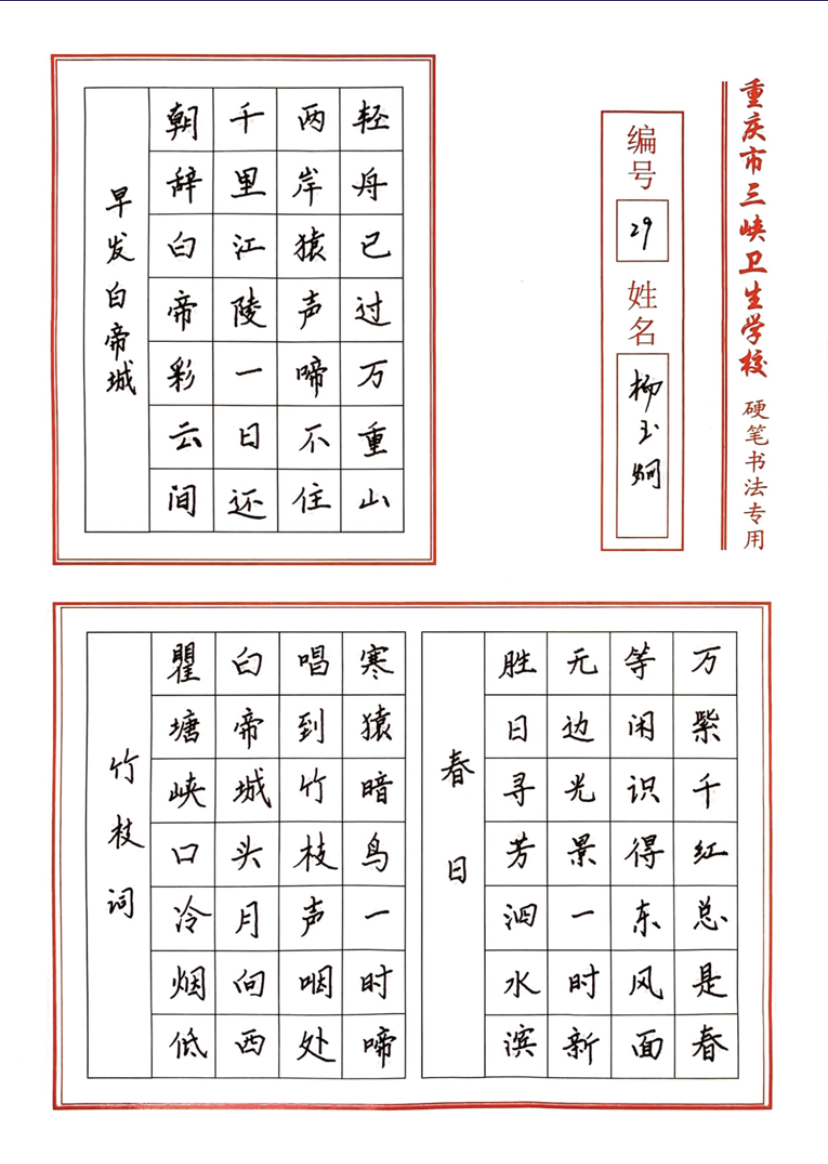 早发白帝城
朝辞白帝彩云间
千里江陵一日还
两岸猿声啼不住
轻舟已过万重山
编号
29
姓名
柳玉炯
重庆市三峡卫生学校 硬笔书法专用
竹枝词
瞿塘峡口冷烟低
白帝城头月向西
唱到竹枝声咽处
寒猿暗鸟一时啼
春日
胜日寻芳泗水滨
无边光景一时新
等闲识得东风面
万紫千红总是春